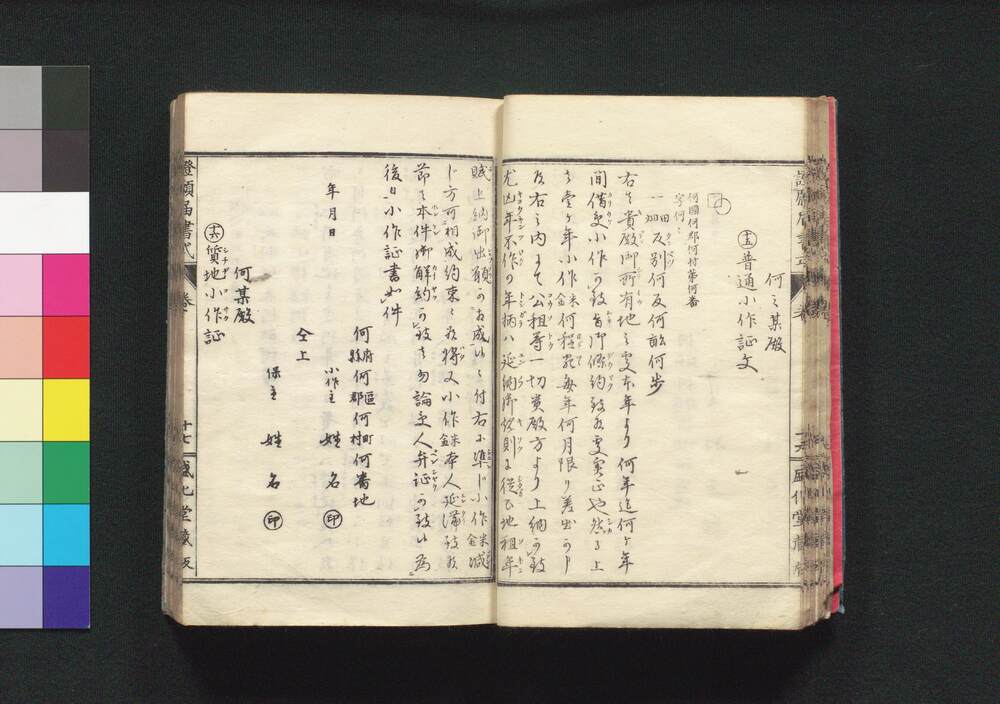 何之某殿
十五 普通小作証文
何國何郡何村第何番
字何々
一 田畑 反別何反何畝何歩
右ハ貴殿御所有地之処本年ヨリ何年迄何ヶ年
間借受小作可致旨御條約致候処実正也然ル上
ハ壹ヶ年小作米金何程宛毎年何月限リ差出可申
尤右之内ニテ公租等一切貴殿方ヨリ上納可致
尤凶年不作ノ年柄ハ延納済伏則ニ従ヒ地租年
賦上納御出願可相成候ニ付右ニ準ジ小作米金減
ジ方可相成約束ニ候将又小作米金本人延滞致候
節ハ本件御解約可致ハ勿論受人弁証可致候為
後日小作証書如件
何府縣何區郡何町村何番地
年月日 小作主 姓 名 印
仝上
保主 姓 名 印
何某殿
十六 質地小作証
證願届書式 巻
十七 盛化堂蔵板